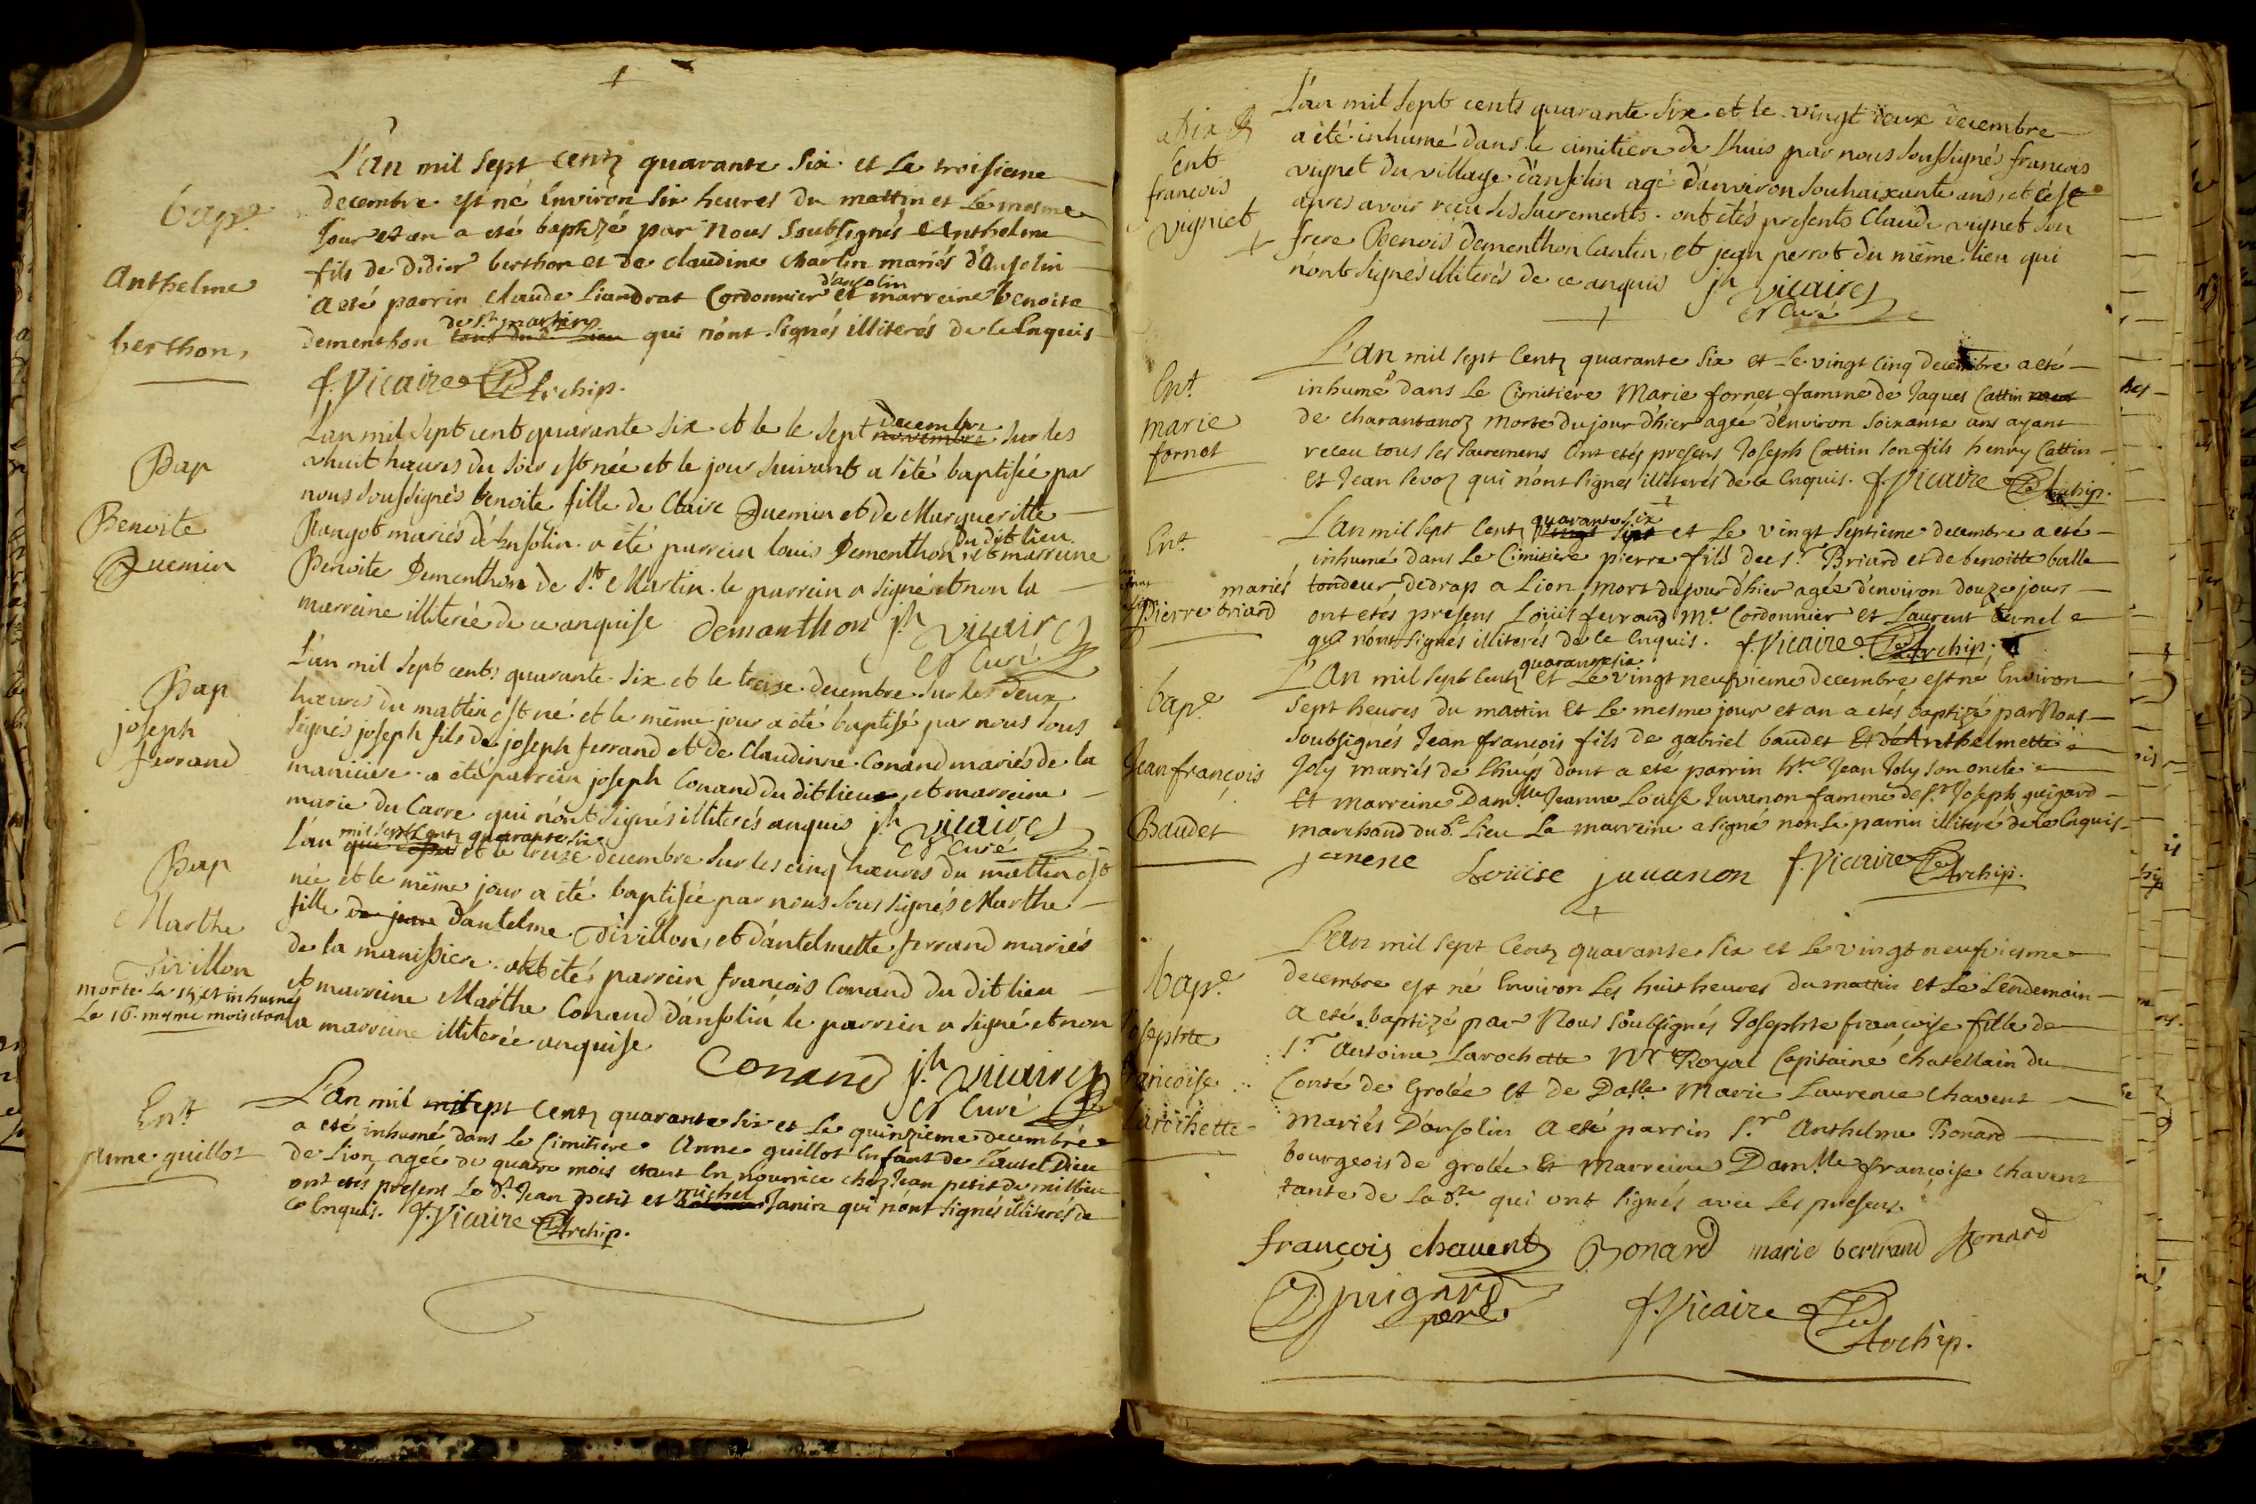 L'an mil sept centz quarante six et le troisieme
bap.e
decembre est né Environ six heures du mattin et Le mesme
Jour et an a eté baptizé par Nous Soubsignés Anthelme
Anthelme
fils de didier berthon et de claudine charlin mariés d'ansolin
d'ansolin
a eté parrin claude Liandrat Cordonnier et marreine benoite
berthon
de St. martin
dementhon tous du d. Lieu qui n'ont signés illiterés de ce Enquis
f. Vicaire Archip.
decembre
L'an mil sept cent quarante six et le le sept novembre sur les
Bap
Benoite
Quemin
huit hœures du soir est née et le jour suivant a été baptisée par
nous soussignés benoite fille de Claire Quemin et de Margueritte
du dit lieu
mariés d'Ensolin. a été parrein louis Dementhon, et marreine
Benoite Dementhon de St. Martin. le parrein a signé et non la
marreine illiterée de ce anquise demanthon jh vicaire
et Curé
Bap
joseph
ferrand
L'an mil sept cents quarante six et le treise decembre sur les deux
hœures du mattin est né et le même jour a été baptisé par nous sous
signés joseph fils de joseph ferrand et de Claudinne Conand mariés de la
maniciere. a été parrein joseph Conand du dit lieu, et marreine
marie du Carre qui n'ont signés illiterés anquis jh vicaire
et Curé
mil sept Centz quarante six
Bap
Marthe
Divillon
L'an et le treize decembre sur les cinq hœures du mattin est
née et le même jour a été baptisée par nous sous signés Marthe
fille de jean d'antelme Divillon, et d'antelmette ferrand mariés
de la manissiere. a été parrein françois Conand du dit lieu
et marreine Marthe Conand d'ansolin le parrein a signé et non
la marreine illiterée anquise
morte le 15 et inhumée
Le 16 mesme mois et an
Conand jh vicaire
et Curé
Ent.
anne guillot
L'an mil sept Centz quarante six et Le quinzieme decembre
a eté inhumé dans Le Cimitiere Anne guillot Enfant de L'autel Dieu
de Lion agée de quatre mois etant En nourrice chez Jean petit de millieu
michel
ont etés presens Le dt. Jean petit et Janin qui n'ont signés illiterés de
ce Enquis. f. Vicaire Archip.
L'an mil sept cents quarante six et le vingt deux decembre
Ent
françois
vigniet
a été inhumé dans le cimitiere de Lhuis par nous soussignés francois
vignet du village d'anselin agé d'anviron souhaixante ans, et c'est
apres avoir reçu les sacrements. ont étés presents Claude vignet son
frere Benois dementhon Cantin, et jean perrot du même lieu qui
n'ont signés illiterés de ce anquis jh vicaire
et Curé
Ent.
marie
fornet
L'an mil sept Centz quarante six et Le vingt Cinq decembre a eté
inhumé dans Le Cimitiere Marie fornet famme de Jaques Cattin
de charantanoz Morte du jour d'hier agée d'environ soixante ans ayant
receu tous ses sacremens Ont etés presens Joseph Cattin son fils henry Cattin
Et Jean Sevoz qui n'ont signes illiterés de ce Enquis. f. Vicaire Archip.
quarante six
Ent.
mariés
Pierre briard
L'an mil sept Centz vingt sept et Le vingt septieme decembre a eté
inhumé dans Le Cimitiere pierre fils de sr. Briard et de benoitte balle
tondeur de drap a Lion mort du jour d'hier agée d'environ douze jour
ont etés presens Loüis ferrand Me. Cordonnier et Laurent
qui n'ont signés illiterés de ce Enquis. f. Vicaire Archip.
quarante six
bap.e
Jean françois
Baudet
L'an mil sept Centz Et Le vingt neufvieme decembre est né Environ
sept heures du mattin Et Le mesme jour et an a etés baptizé par Nous
soubsignés Jean françois fils de gabriel baudet Et d'Anthelmette
Joly mariés de Lhuys dont a eté parrin Jean Joly son oncle
Et marreine Damlle Jeanne Louise Juvanon famme de sr. Joseph guigard
marchand dud. Lieu La marreine a signé non Le parrin illiteré de ce Enquis
janene Loüise juuanon f. Vicaire Archip.
bap.e
Josephte
francoise
Larochette
L'an mil sept Centz quarante six et Le vingt neufviesme
decembre est né Environ Les huit heures du mattin et Le Lendemain
a eté baptizé par Nous soubsignés Josephte françoise fille de
sr. Antoine Larochette Nre Royal Capitaine chatellain du
Conté de Grolée et de Dalle Marie Laurence Chavent
mariés D'ansolin a eté parrin sr. Anthelme Bonard
bourgeois de grolée Et Marreine Damlle françoise Chavent
tante de la dte qui ont signés avec Les presens
françois chauent Bonard marie bertrand Bonard
puigard
pere
f. Vicaire Archip.